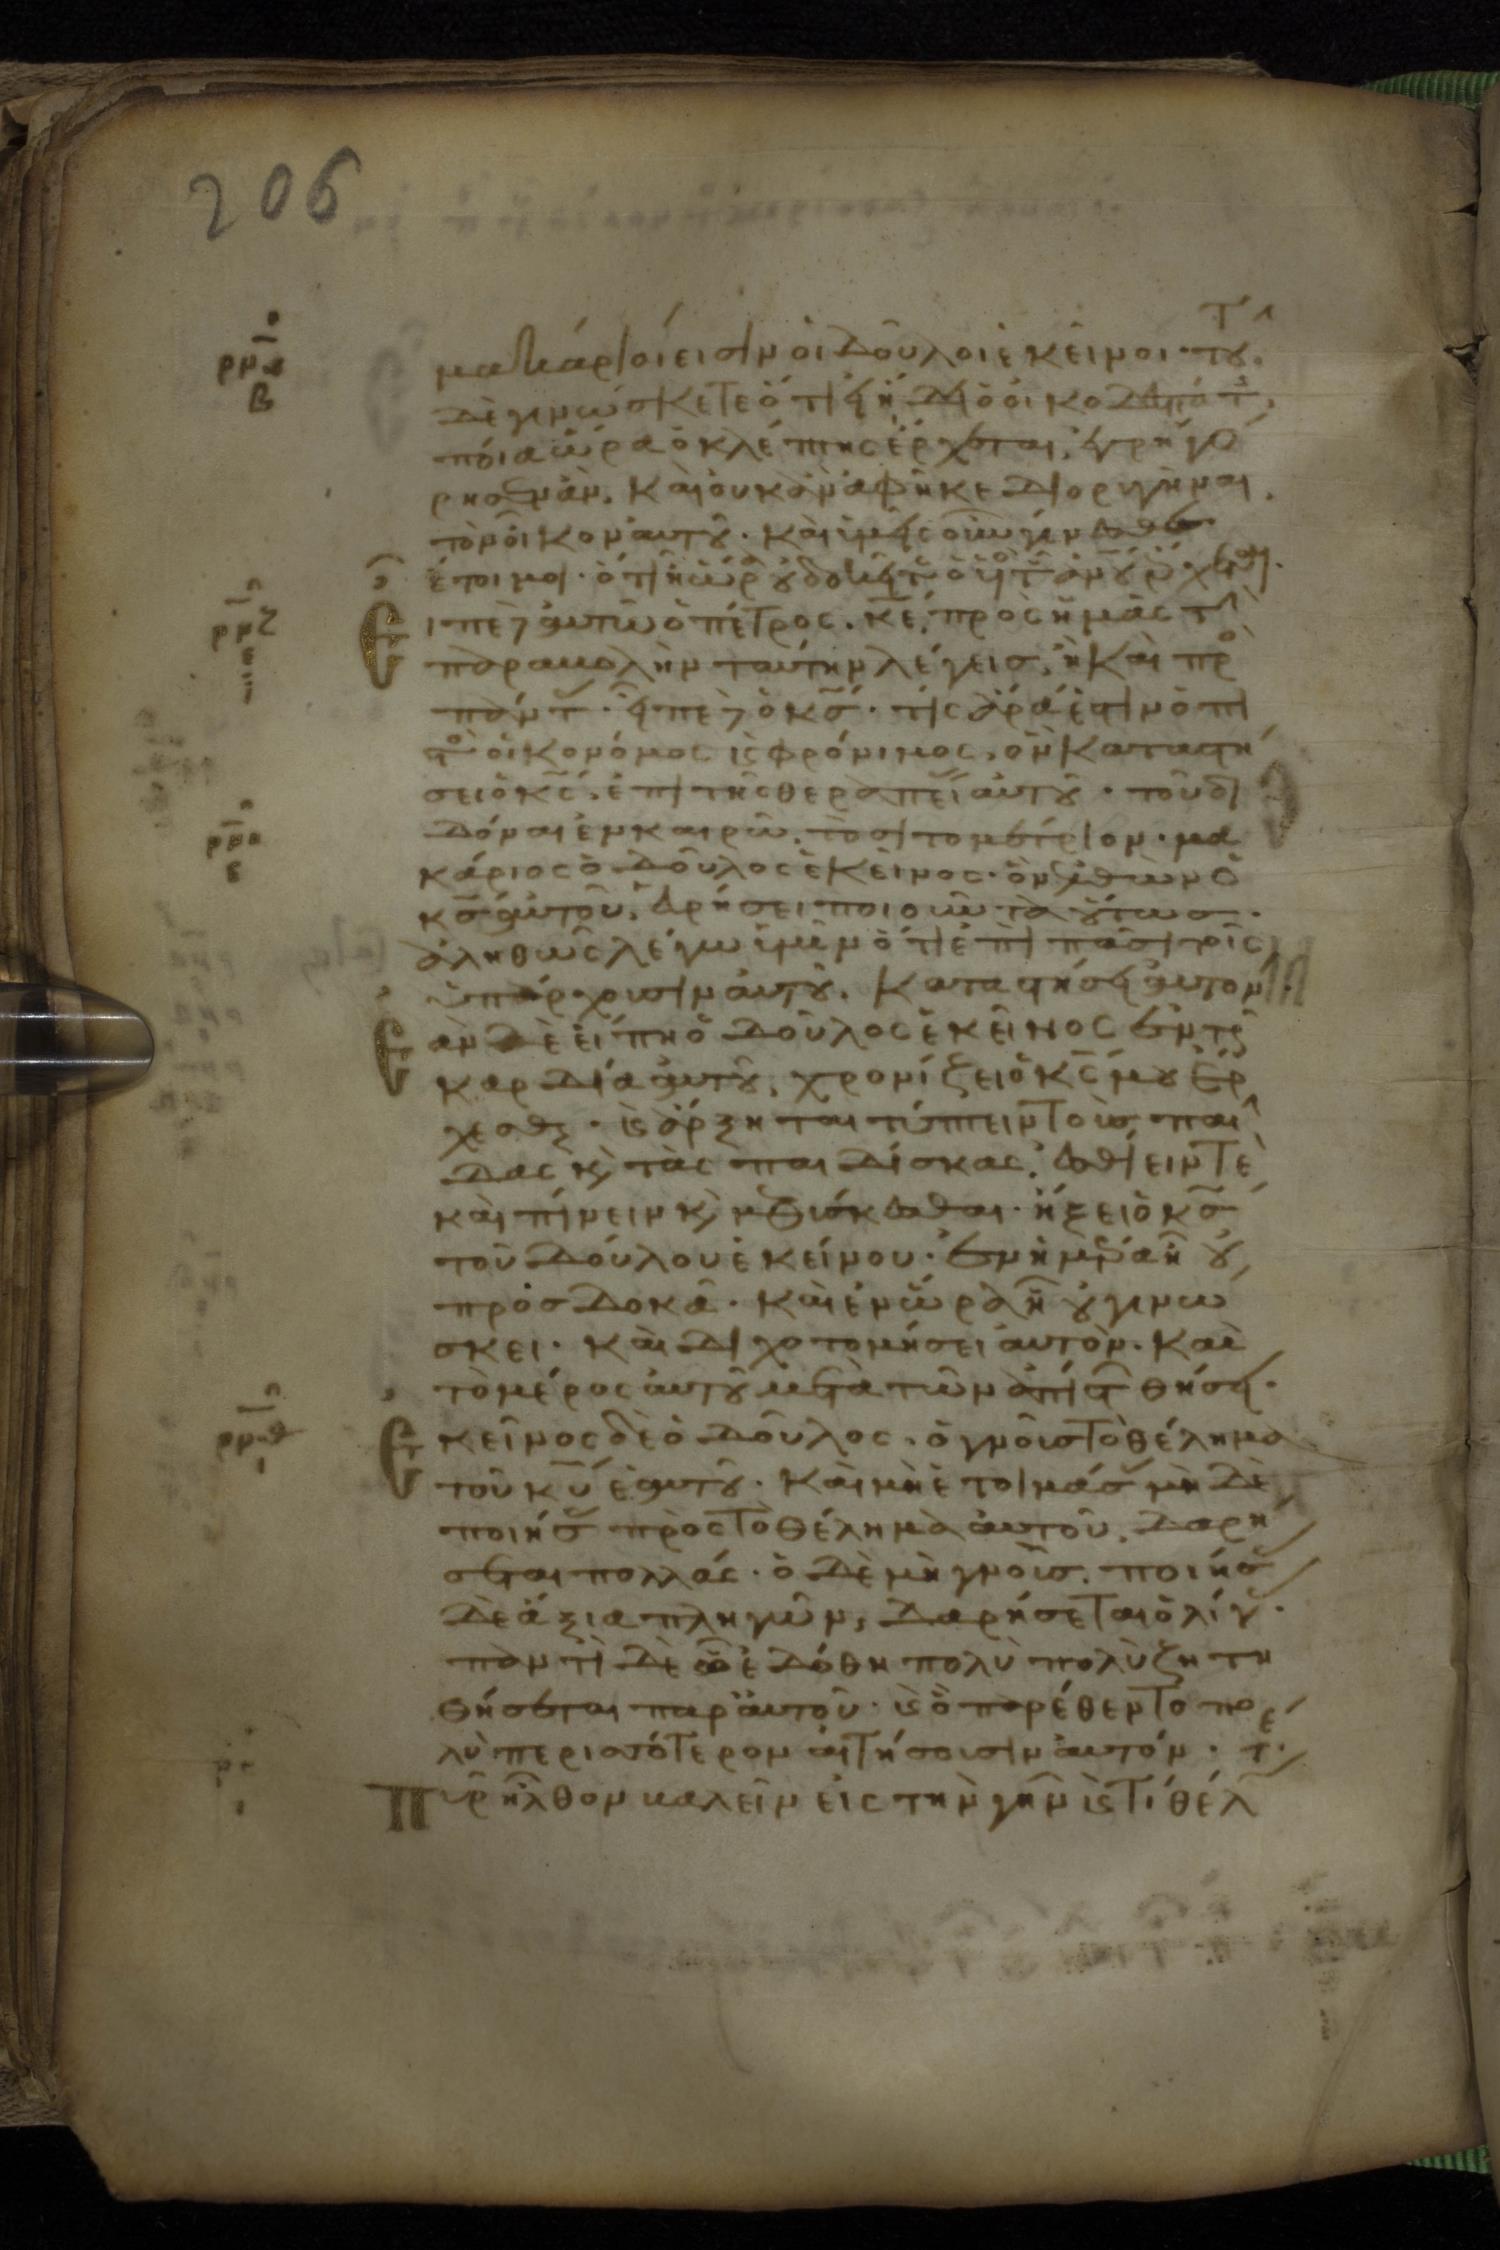 206
μακάριοί εισιν οἱ δοῦλοι ἐκεῖνοι· τοῦ
δὲ γινώσκετε ὅτι εἰ ἤδει ὁ οἰκοδεσπότ
ποία ὥρα ὁ κλέπτης ἔρχεται, ἐγρηγό
ρησεν ἄν. καὶ οὐκ ἂν ἀφῆκε διορυγῆναι
τὸν οἶκον αὐτοῦ. καὶ ὑμεῖς οὖν γίνεσθε
ἕτοιμοι. ὅτι ἡ ὥρα οὐ δοκεῖτε ὁ υἱὸς τοῦ ανου ἔρχεται.
Ειπε δε αυτῶ ὁ πέτρος. κε, πρὸς ἡμᾶς τὴν
παραβολὴν ταύτην λέγεις, ἢ καὶ πρὸς
πάντας. εἶπε δὲ ὁ κς. τίς ἄρα ἐστὶν ὁ πι
στὸς οἰκονόμος κ φρόνιμος, ὃν καταστή
σει ὁ κς, ἐπὶ τῆς θεραπείας αὐτοῦ. τοῦ δι
δόναι ἐν καιρῶ, τὸ σιτομέτριον. μα
κάριος ὁ δοῦλος ἐκεῖνος. ὃν ἐλθὼν ὁ
κς αὐτοῦ, εὑρήσει ποιοῦντα οὕτως.
ἀληθῶς λέγω ὑμῖν ὅτι ἐπὶ πᾶσι τοῖς
ὑπάρχουσιν αὐτοῦ, καταστήσει αὐτόν.
Εὰν δὲ εἴπη ὁ δοῦλος ἐκεῖνος ἐν τῆ
καρδία αὐτοῦ, χρονίζει ὁ κς μου ἔρ
χεσθαι. κ ἄρξηται τύπτειν τοὺς παῖ
δας κ τὰς παιδίσκας, ἐσθίειν τε
καὶ πίνειν κ μεθύσκεσθαι. ἥξει ὁ κς
τοῦ δούλου ἐκείνου. ἐν ἡμέρα ἧ οὐ
προσδοκᾶ. καὶ ἐν ὥρα ἧ οὐ γινώ
σκει. καὶ διχοτομήσει αὐτὸν. καὶ
τὸ μέρος αὐτοῦ μετὰ τῶν ἀπίστων θήσει.
Εκεῖνος δὲ ὁ δοῦλος. ὁ γνοὺς τὸ θέλημα
τοῦ κυ ἑαυτοῦ. καὶ μὴ ἑτοιμάσας μὴ δὲ
ποιήσας πρὸς τὸ θέλημα αὐτοῦ, δαρή
σεται πολλάς. ὁ δὲ μὴ γνοὺς, ποιήσας
δὲ ἄξια πληγῶν, δαρήσεται ὀλίγας.
παντὶ δὲ ὧ ἐδόθη πολὺ πολὺ ζητη
θήσεται παρ αὐτοῦ. κ ὧ παρέθεντο πο
λὺ περισσότερον αἰτήσουσιν αὐτόν. τε
Πῦρ ἦλθον βαλεῖν εἰς τὴν γῆν κ τί θέλω